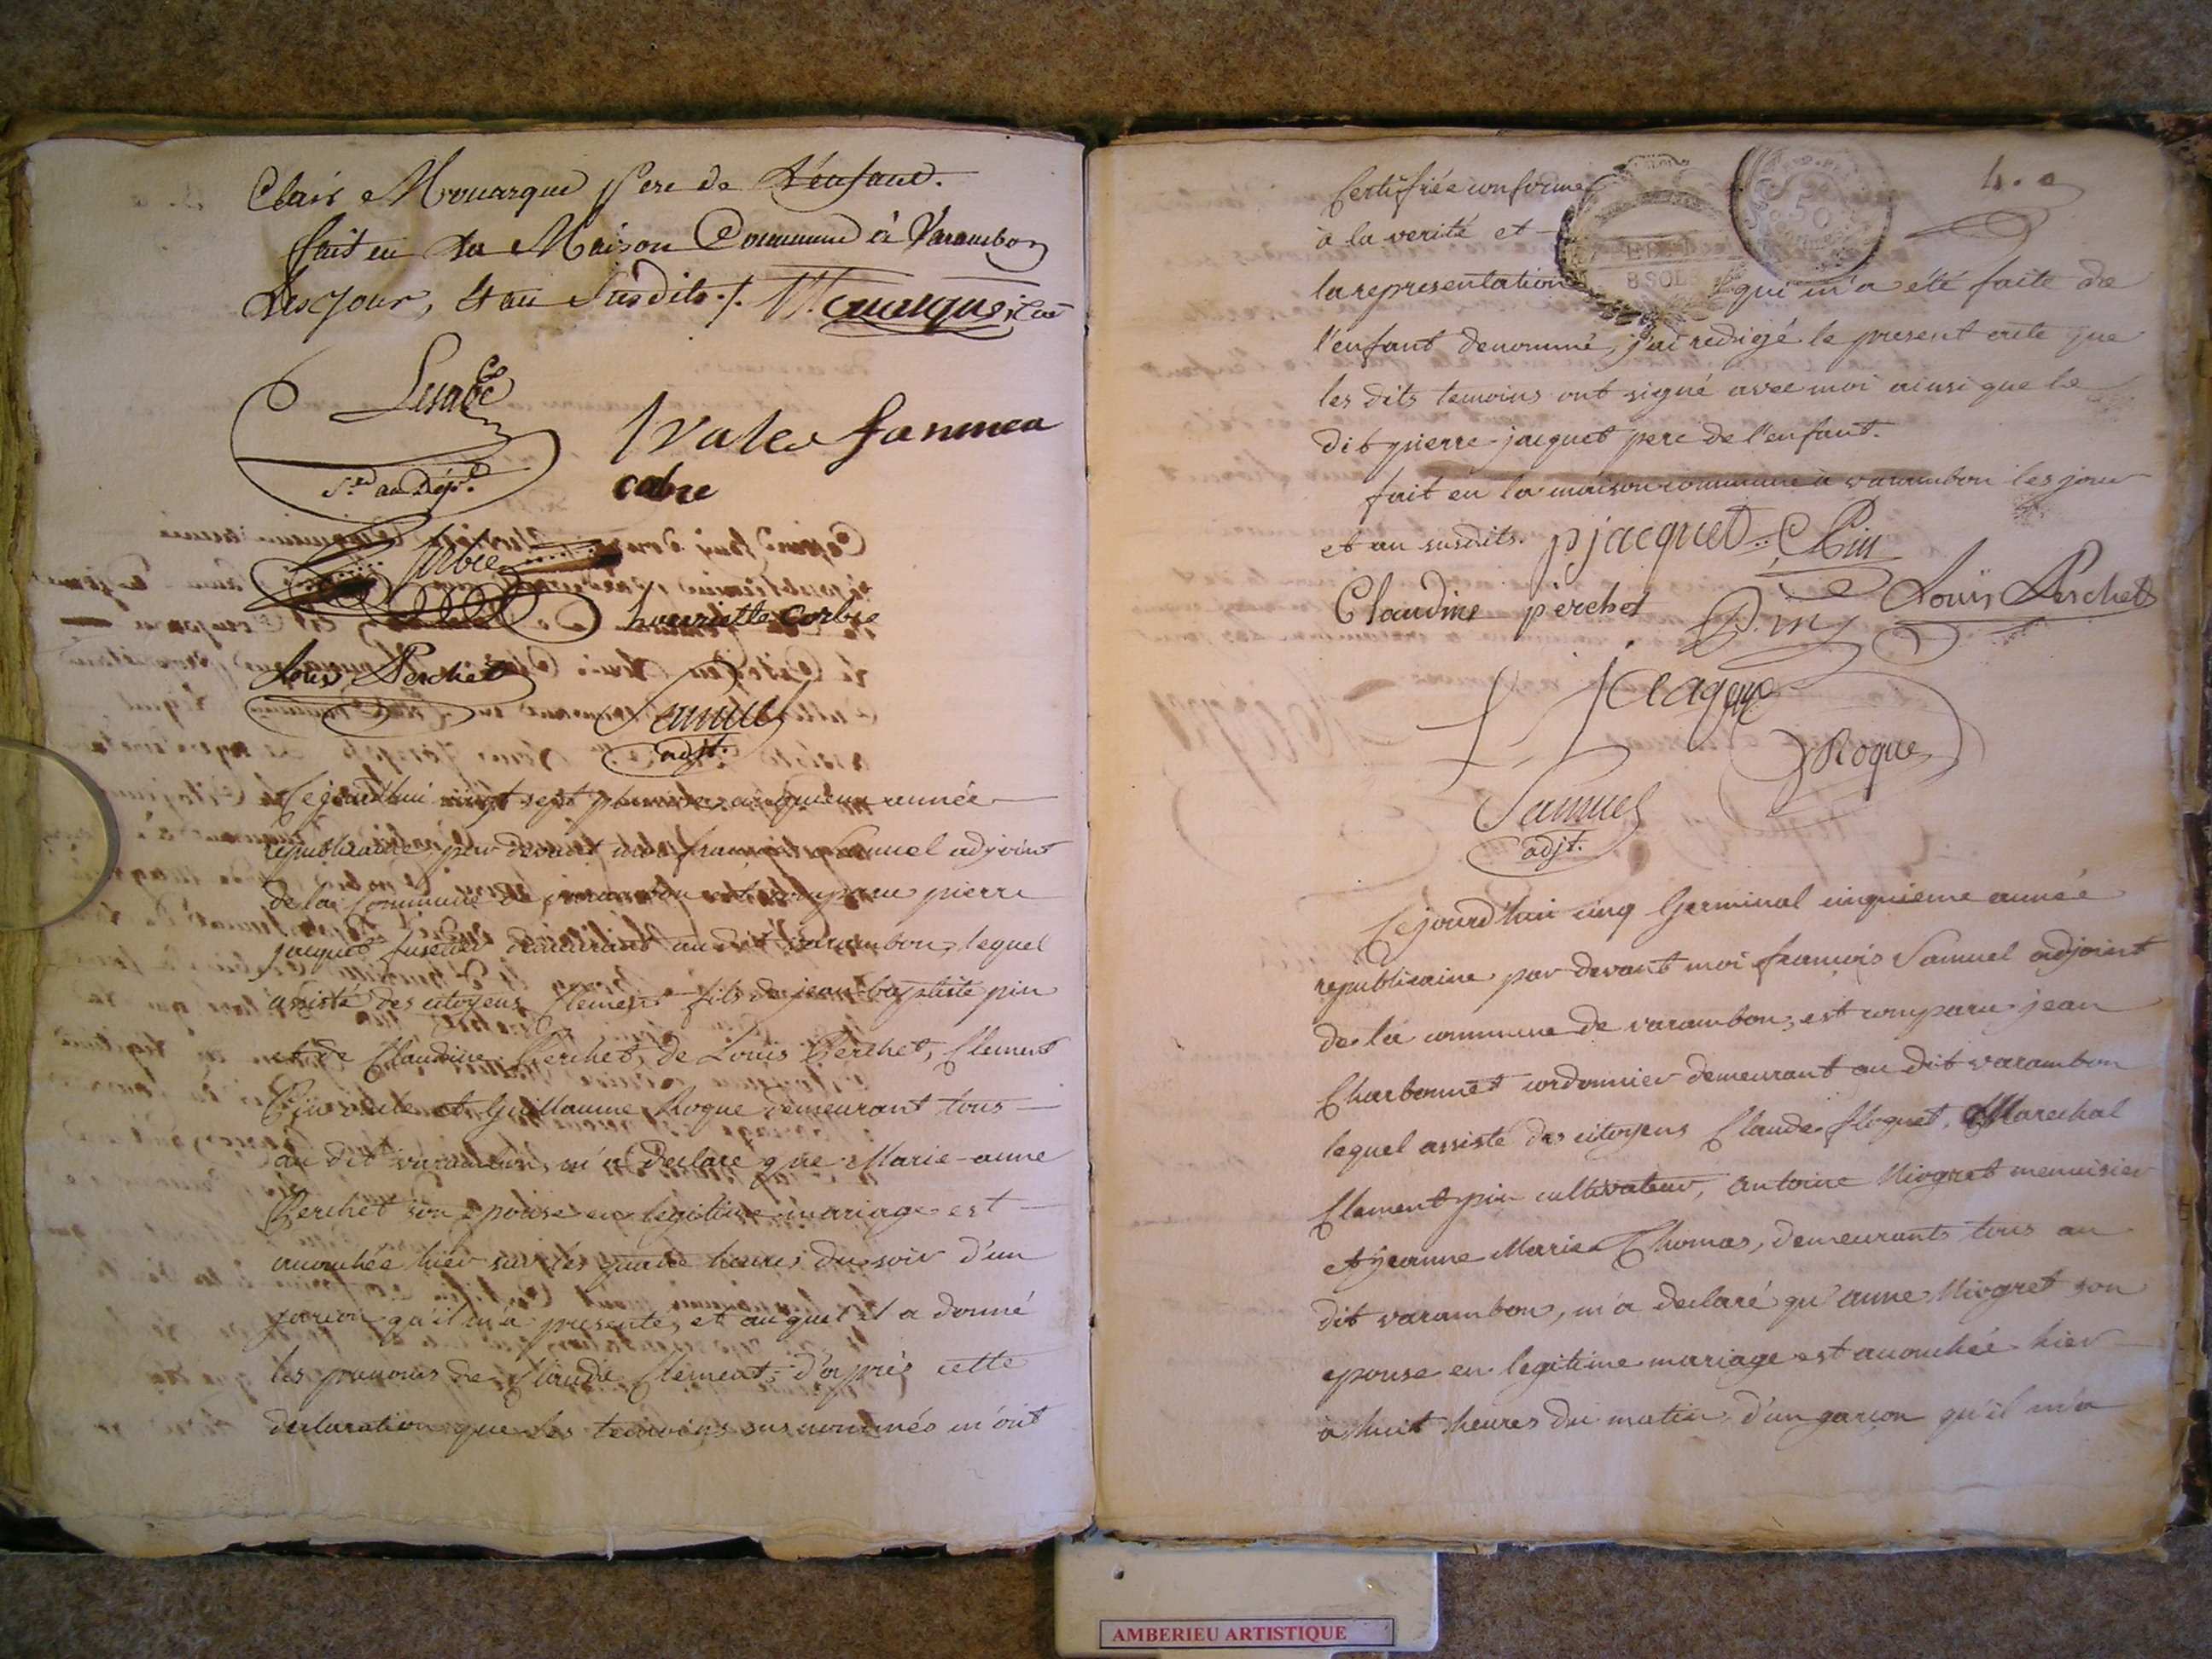 Clair Monarque Pere de L'enfant.
fait en La Maison Commune à Varambon
Les Jour, & an Susdits ./.
Lesabe
Sre au Dépt.
Valer fanmea
cabre
Corbie
henriette corbie
Louis Perchet
Samuel
adjt.
Cejourdhui vingt sept pluviose cinquieme année
republicaine, par devant moi françois Samuel adjoint
de la Commune de varambon est comparu pierre
jacquet demeurant au dit varambon, lequel
assisté des citoyens Clement fils de jean-baptiste pin
et de Claudine Perchet, de Louis Perchet, Clement
Pin et Guillaume Roque demeurant tous
au dit varambon, m'a declare que Marie-anne
Perchet son epouse en legitime mariage est
accouchée hier sur les quatre heures du soir d'un
garcon qu'il m'a presenté, et auquel il a donné
les prenoms de Claude Clement, d'après cette
declaration que les temoins sus nommés m'ont
4.e
Certifiée conforme
à la verité et
la representation qui m'a été faite de
8 SOLS
50
l'enfant denommé, j'ai redigé le present acte que
les dits temoins ont signé avec moi ainsi que le
dit pierre jacquet pere de l'enfant.
fait en la maison commune à varambon les jour
et an susdits. pjacquet C Pin
Claudine perchet Pin Louis Perchet
Roque
Samuel
adjt.
Cejourd'hui cinq Germinal cinquieme année
republicaine par devant moi françois Samuel adjoint
de la commune de varambon, est comparu jean
Charbonnet cordonnier demeurant au dit varambon
lequel assisté des citoyens Claude floquet, Marechal
Clement pin cultivateur, Antoine Niogret menuisier
et jeanne Marie Thomas, demeurants tous au
dit varambon, m'a declaré qu'anne Niogret son
epouse en legitime mariage est accouchée hier
à huit heures du matin, d'un garcon qu'il m'a
AMBERIEU ARTISTIQUE